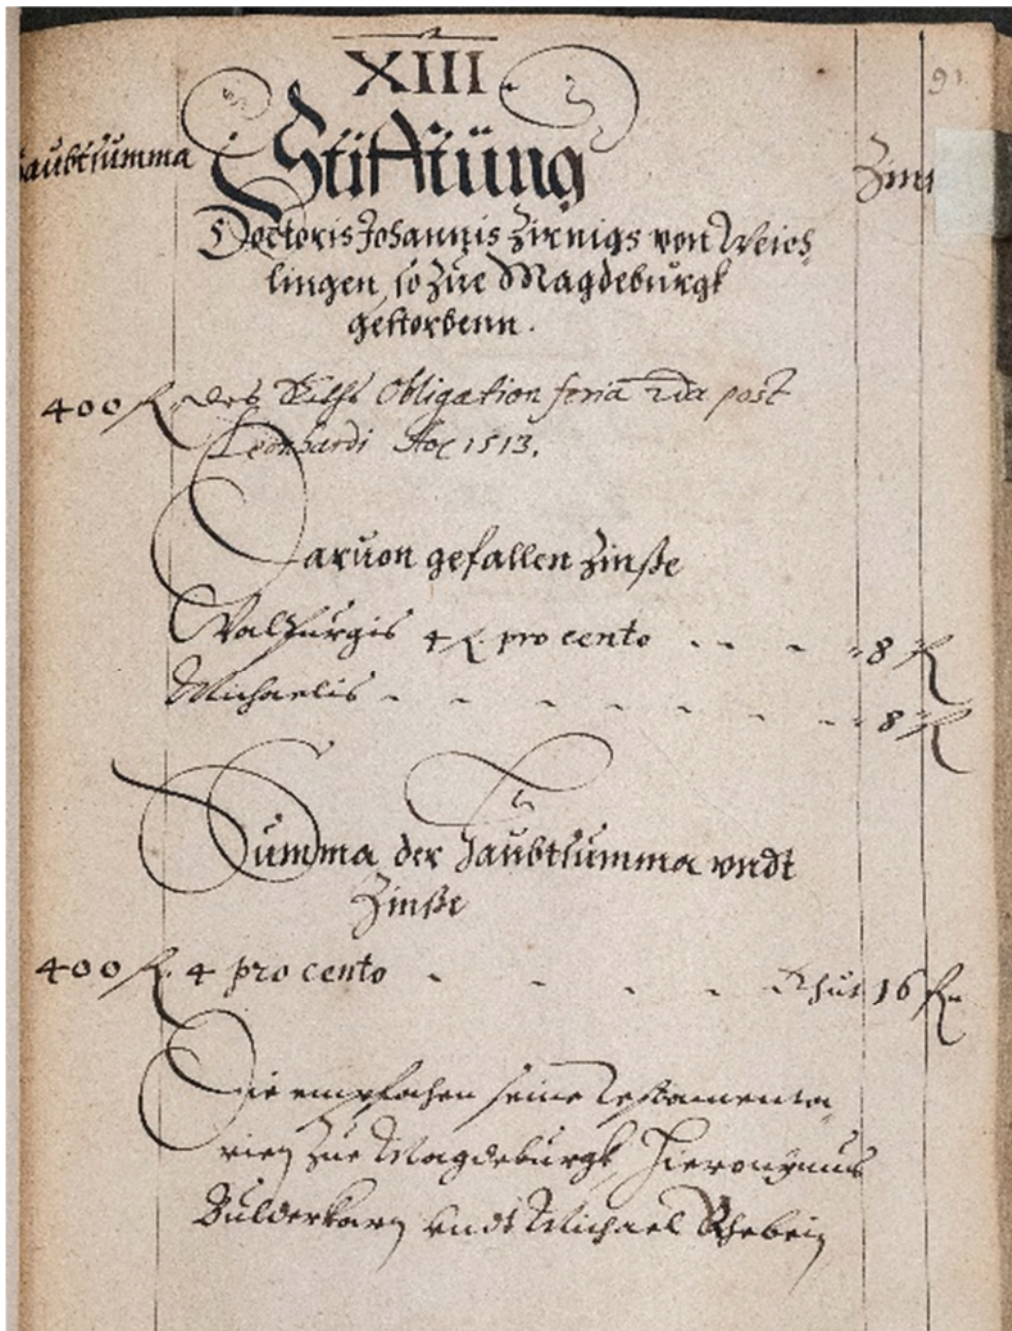 XIII
91.
Haubtsumma
Stifftüng
Zinß
Doctoris Johannis Zirnigs von Weich,
lingen, so Zue Magdeburgk
gestorbenn.
400 fl. des Raths Obligation feria 2da post
Leonhardi Aoc 1513.
Daruon gefallen Zinße
Walpurgis 4 fl. pro cento 8 fl
Michaelis 8 fl
Summa der Haubtsumma vndt
Zinße
400 fl. 4 pro cento Thut 16 fl
Die empfahen seine Testamenta,
rien Zue Magdeburgk, Hieronymus
vndt Michael Rhebein